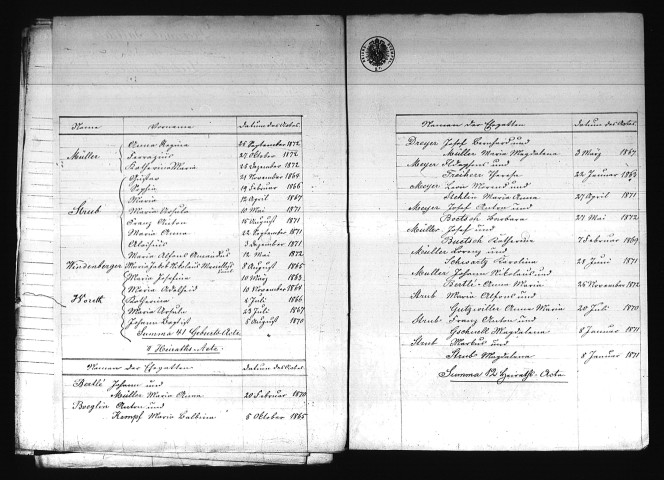 Name Vorname Datum des Actes
Müller Anna Regina 25 September 1872
Ferrazius 27 October 1872
Katharina Maria 25 Dezember 1872
Gustav 21 November 1864
Sophia 19 Februar 1866
Maria 12 April 1867
Strub Maria Ursula 10 Mai 1871
Franz Anton 15 August 1871
Maria Anna 22 September 1871
Aloisius 3 Dezember 1871
Maria Alfons Amandus 12 Mai 1872
Windenberger Maria Jakob Nikolaus 8 August 1865
Maria Josefina 10 März 1863
Maria Adelheid 10 November 1864
Katharina 6 Juli 1866
Maria Ursula 23 Juli 1867
Johann Baptist 5 August 1870
Summa 41 Geburts-Acte
Heiraths-Acte.
Namen der Ehegatten Datum des Actes
Bertlé Johann und
Müller Maria Anna 20 Februar 1870
Boeglin Anton und
Kempf Maria Balbina 6 October 1865
Namen der Ehegatten Datum des Actes
Dreyer Josef Bernhard und
Müller Maria Magdalena 3 März 1867
Meyer und
Theresia 22 Januar
Meyer Morand und
Stehlin Maria Anna 27 April 1871
Meyer Josef Anton und
Bertsch Barbara 27 Mai 1872
Müller Josef und
Katharina 7 Februar 1869
Müller Lorenz und
Schwartz Karolina 28 Juni 1871
Müller Johann Nikolaus und
Bertlé Anna Maria 26 November 1872
Strub Maria Alfons und
Gutzwiller Anna Maria 20 Juli 1870
Strub Franz Anton und
Gschnell Magdalena 8 Januar 1871
Strub Markus und
Strub Magdalena 8 Januar 1871
Summa 12 Heirath-Acte